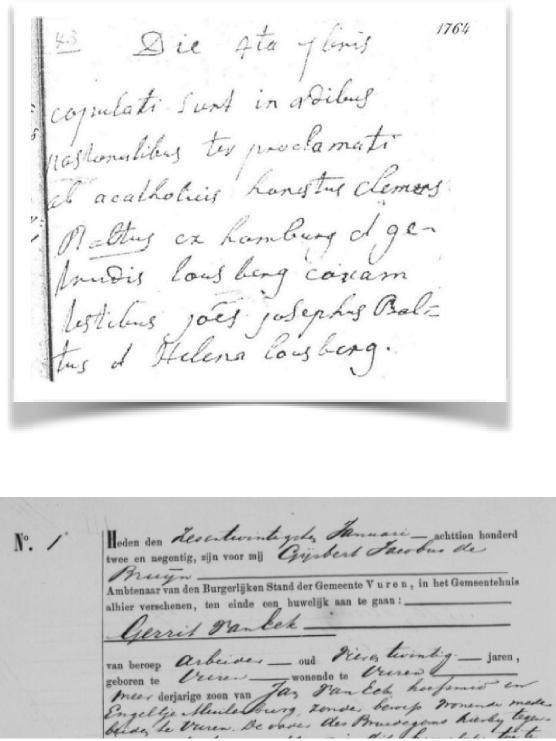 43
1764
Die 4ta 7bris
copulati sunt in ædibus
pastoralibus ter proclamati
et acatholicis honestus clemens
Baltus ex hamburg et ge-
trudis lousberg coram
testibus joes josephus Bal=
tus et Helena lousberg.
No. 1
Heden den Zesentwintigsten Januari achttien honderd
twee en negentig, zijn voor mij Gijsbert Jacobus de
Bruijn
Ambtenaar van den Burgerlijken Stand der Gemeente Vuren, in het Gemeentehuis
alhier verschenen, ten einde een huwelijk aan te gaan:
Gerrit van Eck
van beroep arbeider oud Vierentwintig jaren,
geboren te Vuren wonende te Vuren
meerderjarige zoon van Jan van Eck hoefsmid en
Engeltje Meulenburg, zonder beroep wonende mede
beiden te Vuren. De vader des Bruidegoms hierbij tegen-